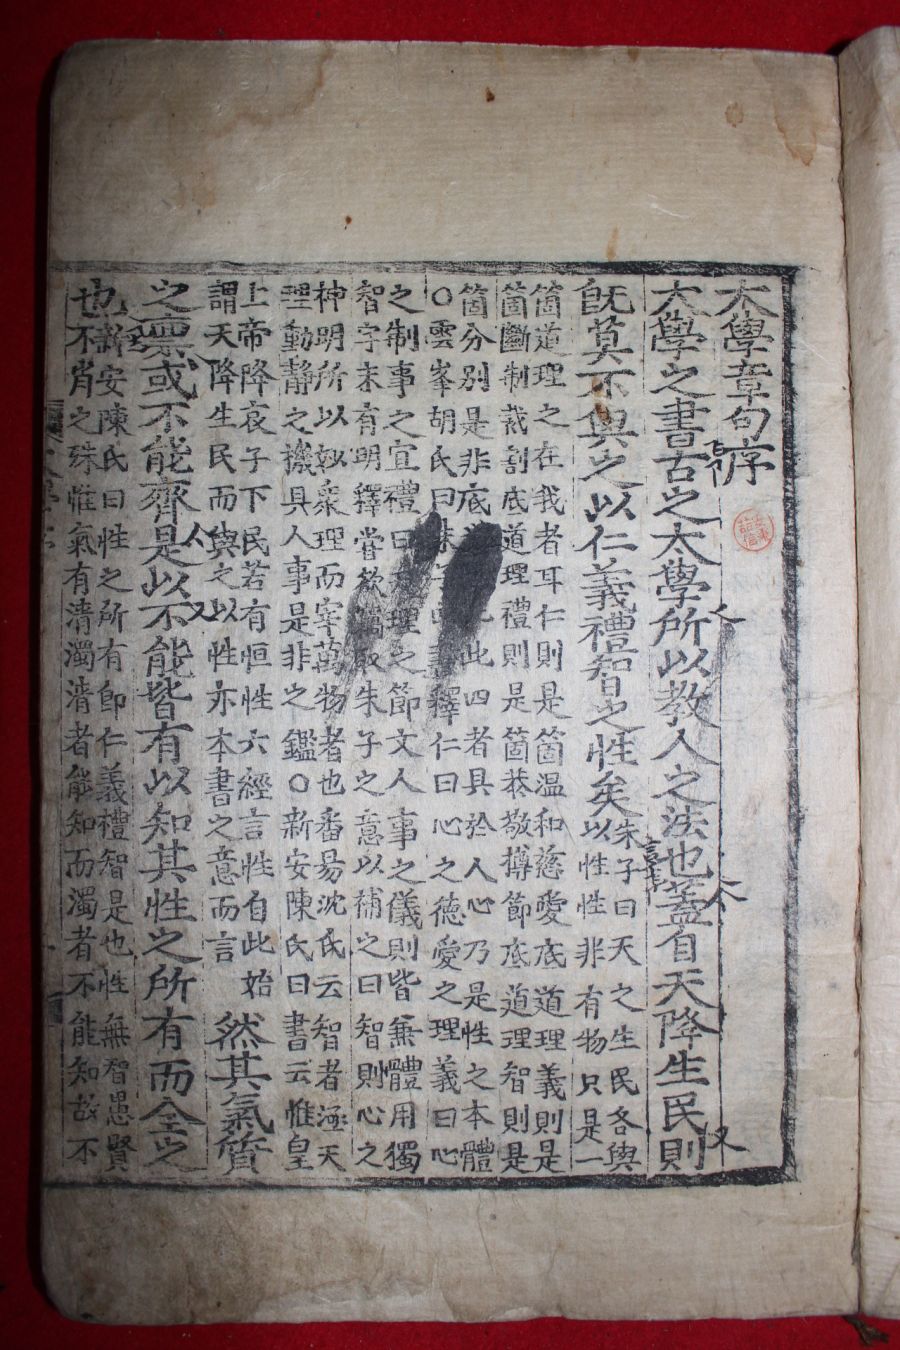 大學章句序
大學之書古之大學所以教人之法也蓋自天降生民則
既莫不與之以仁義禮智之性矣朱子曰天之生民各與
以性性非有物只是一
箇道理之在我者耳仁則是箇溫和慈愛底道理義則是
箇斷制裁割底道理禮則是箇恭敬撙節底道理智則是
箇分別是非底此四者具於人心乃是性之本體
○雲峯胡氏曰釋仁曰心之德愛之理義曰心
之制事之宜禮曰理之節文人事之儀則皆兼體用獨
智字未有明釋嘗欲取朱子之意以補之曰智則心之
神明所以妙衆理而宰萬物者也番昜沈氏云智者涵天
理動靜之機具人事是非之鑑○新安陳氏曰書云惟皇
上帝降衷于下民若有恒性六經言性自此始
謂天降生民而與之以性亦本書之意而言
然其氣質
之禀或不能齊是以不能皆有以知其性之所有而全之
也新安陳氏曰性之所有卽仁義禮智是也性無智愚賢
不肖之殊惟氣有清濁清者能知而濁者不能知故不